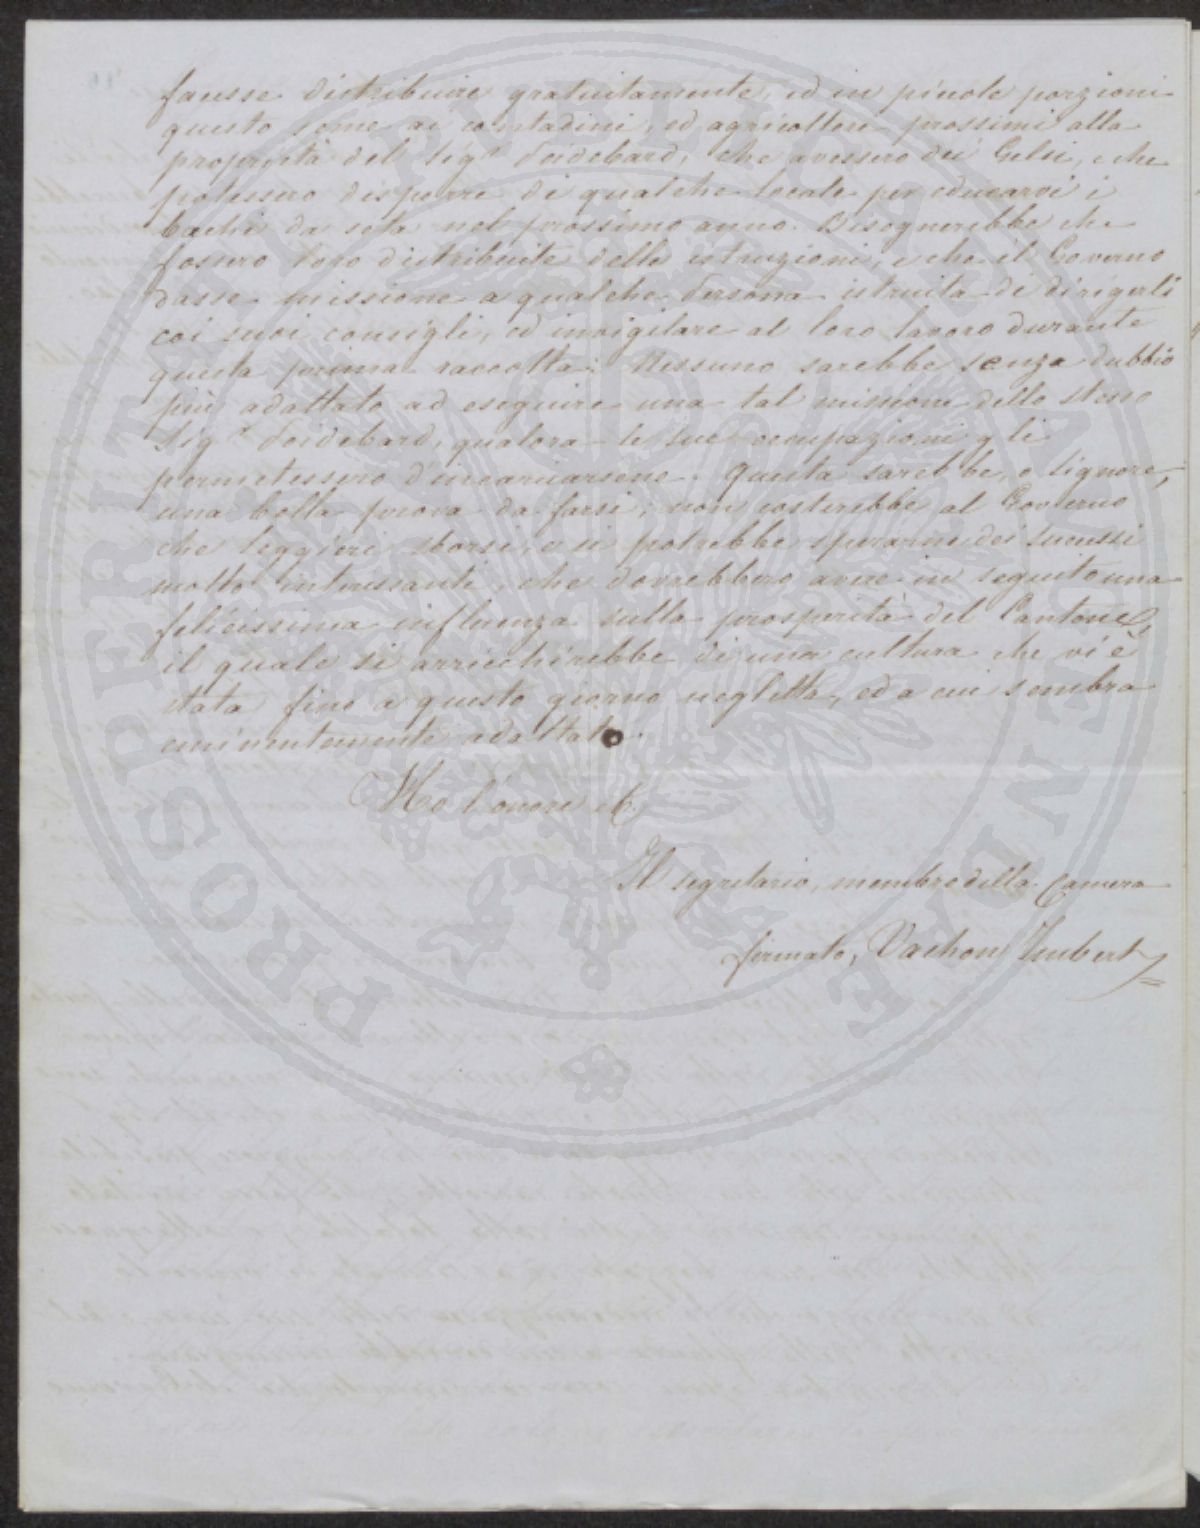 facesse distribuire gratuitamente, ed in picole porzioni
questo seme ai contadini, ed agricoltori prossimi alla
proprietà del Sigr. Doidebard, che avessero dei Gelsi, e che
potessero disporre di qualche locale per educarvi i
bachi da seta nel prossimo anno. Bisognerebbe che
fossero loro distribuite delle istruzioni, e che il Governo
dasse missione a qualche Persona istruita di dirigerli
coi suoi consigli, ed invigilare al loro lavoro durante
questa prima raccolta: Nessuno sarebbe senza dubbio
più adattato ad eseguire una tal missione dello stesso
Sigr. Doidebard, qualora le sue occupazioni gli
permetessero d'incaricarsene. Questa sarebbe, o Signore,
una bella prova da farsi; non costerebbe al Governo
che leggieri sborsi, e si potrebbe sperarne dei sucessi
molto interessanti, che dovrebbero avere in seguito una
felicissima influenza sulla prosperità del Cantone,
il quale si arricchirebbe di una cultura che vi è
stata fino a questo giorno negletta, ed a cui sembra
eminentemente adattato.
Ho l'onore etc.
Il segretario, membro della Camera
firmato, Vachon Imbert
PROSPERITÀ PUBBLICA